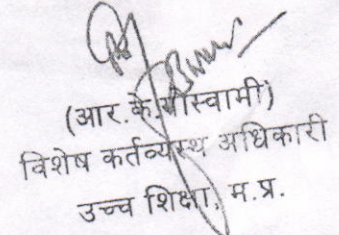 (आर.के.गोस्वामी)
विशेष कर्तव्यस्थ अधिकारी
उच्च शिक्षा, म.प्र.